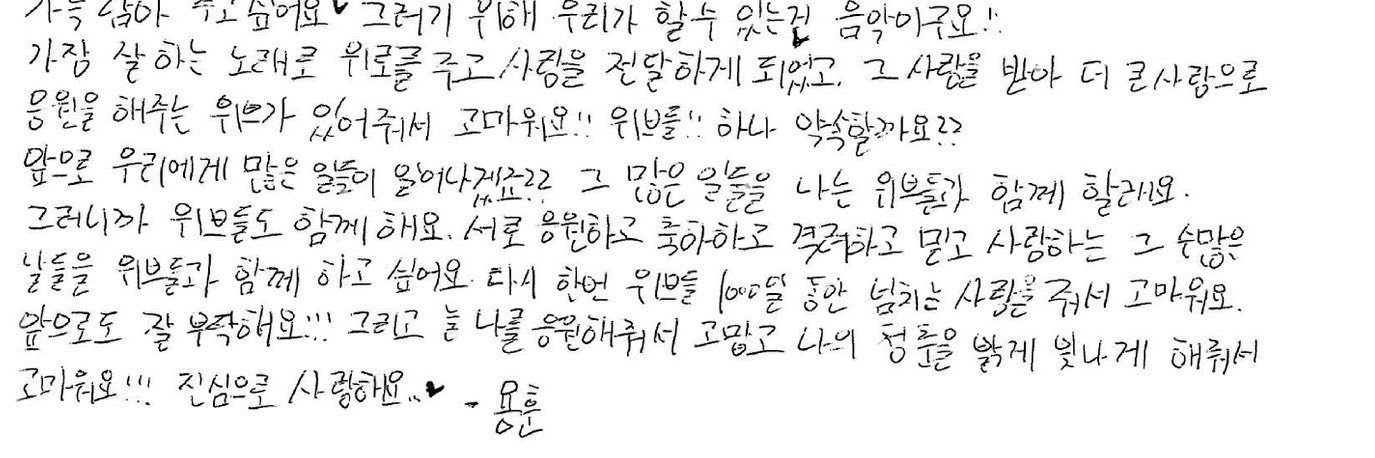 가득 담아 주고싶어요♥ 그러기 위해 우리가 할수 있는건 음악이구요!!
가장 잘 하는 노래로 위로를 주고 사랑을 전달하게 되었고, 그 사랑을 받아 더 큰사랑으로
응원을 해주는 위브가 있어줘서 고마워요!! 위브들!! 하나 약속할까요??
앞으로 우리에게 많은 일들이 일어나겠죠?? 그 많은 일들을 나는 위브들과 함께 할래요.
그러니까 위브들도 함께 해요. 서로 응원하고 축하하고 격려하고 믿고 사랑하는 그 수많은
날들을 위브들과 함께 하고 싶어요. 다시 한번 위브들 1000일 동안 넘치는 사랑을 줘서 고마워요.
앞으로도 잘 부탁해요!!! 그리고 늘 나를 응원해줘서 고맙고 나의 청춘을 밝게 빛나게 해줘서
고마워요!!! 진심으로 사랑해요..♥ - 용훈